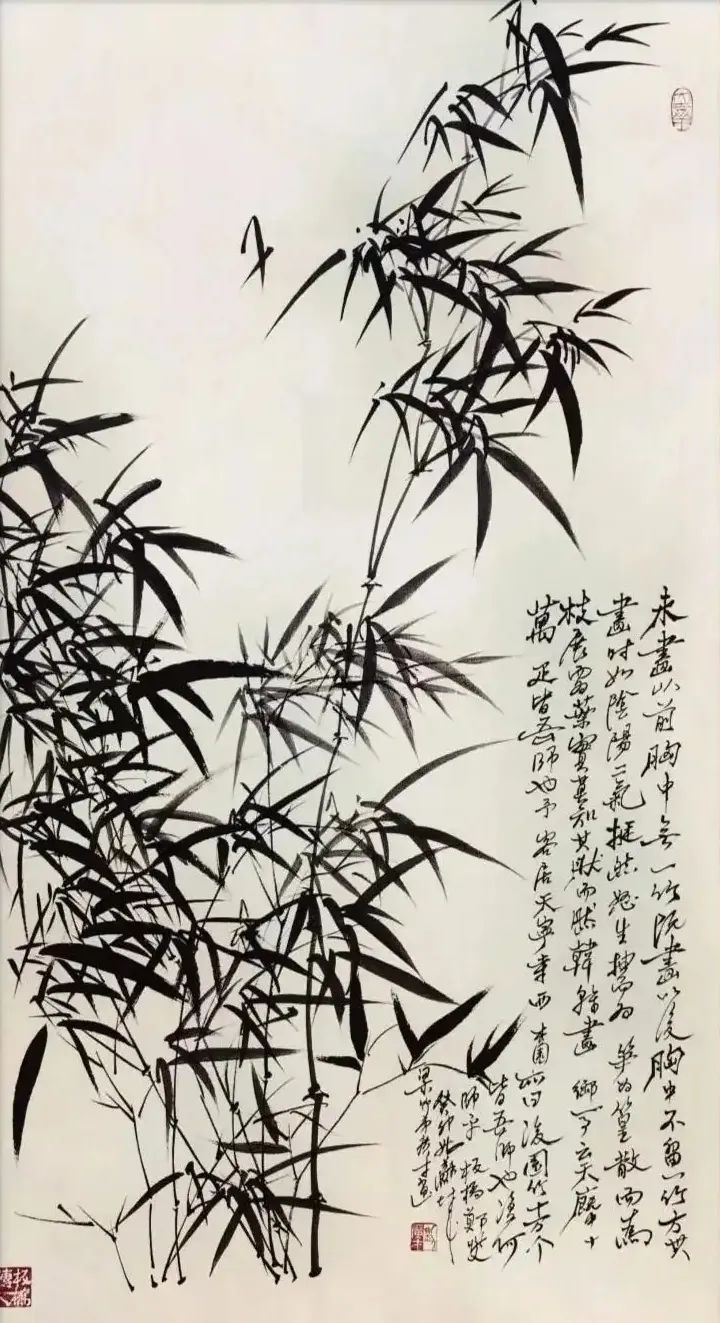 未畫以前胸中無一竹既畫以後胸中不留一竹方其
畫時如陰陽二氣挺然怒生抽為筍為篁散而為
枝展而為葉實莫知其然而然韓幹畫御馬云天廄中十
萬匹皆吾師也予客居天寧寺西杏園亦曰後園竹十萬个
皆吾師也復何
師乎板橋鄭燮
癸卯
板橋
傳人